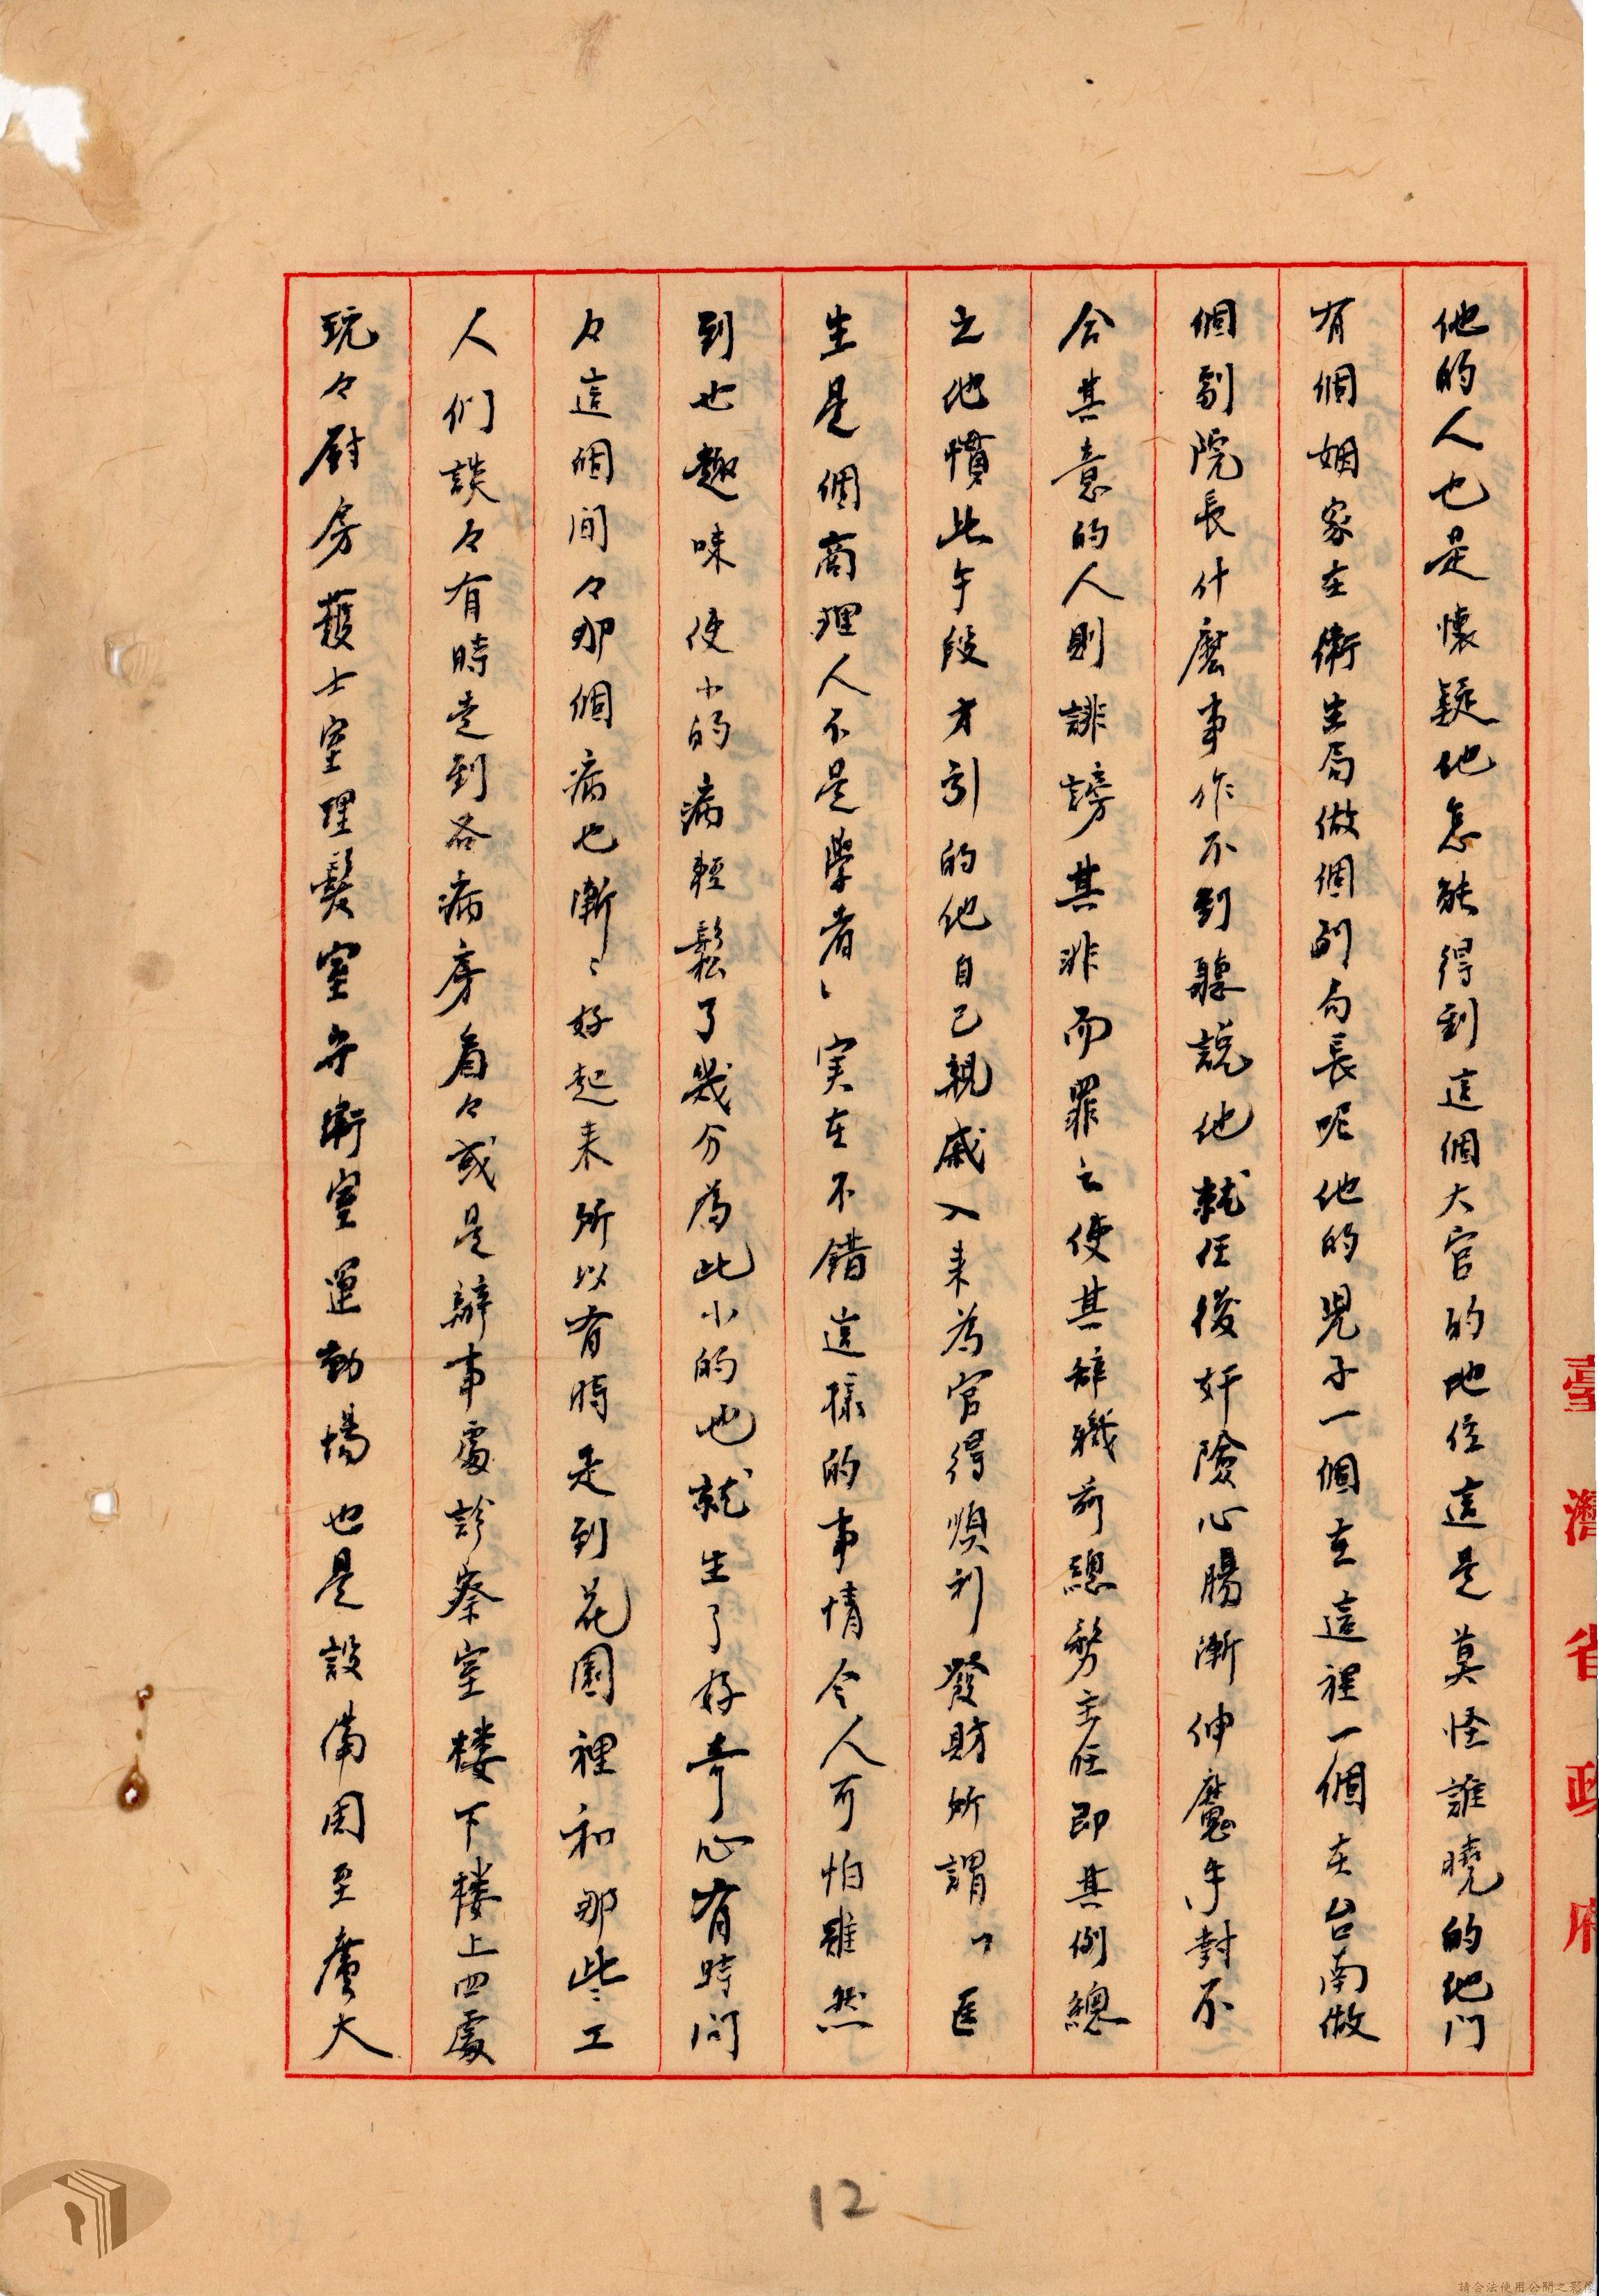 他的人也是懷疑他怎能得到這個大官的地位這是莫怪誰曉的他門
有個姻家在衛生局做個副局長呢他的児子一個在這裡一個在台南做
個副院長什麼事作不到聽説他就任後奸險心腸漸伸魔手對不
合其意的人則誹謗其非而罪之使其辞職前總務主任即其例總
之他慣此手段才引的他自己親戚入来為官得順利發財所謂「医
生是個商理人不是學者」実在不錯這樣的事情令人可怕雖然
到也趣味使小的病輕鬆了幾分為此小的也就生了好奇心有時问
々這個间々那個病也漸々好起来所以有時走到花園裡和那些工
人们談々有時走到各病房看々或是辦事處診察室楼下楼上四處
玩々厨房護士室理髮室守衛室運動場也是設備周至廣大
臺灣省政府
12
請合法使用公開之影像